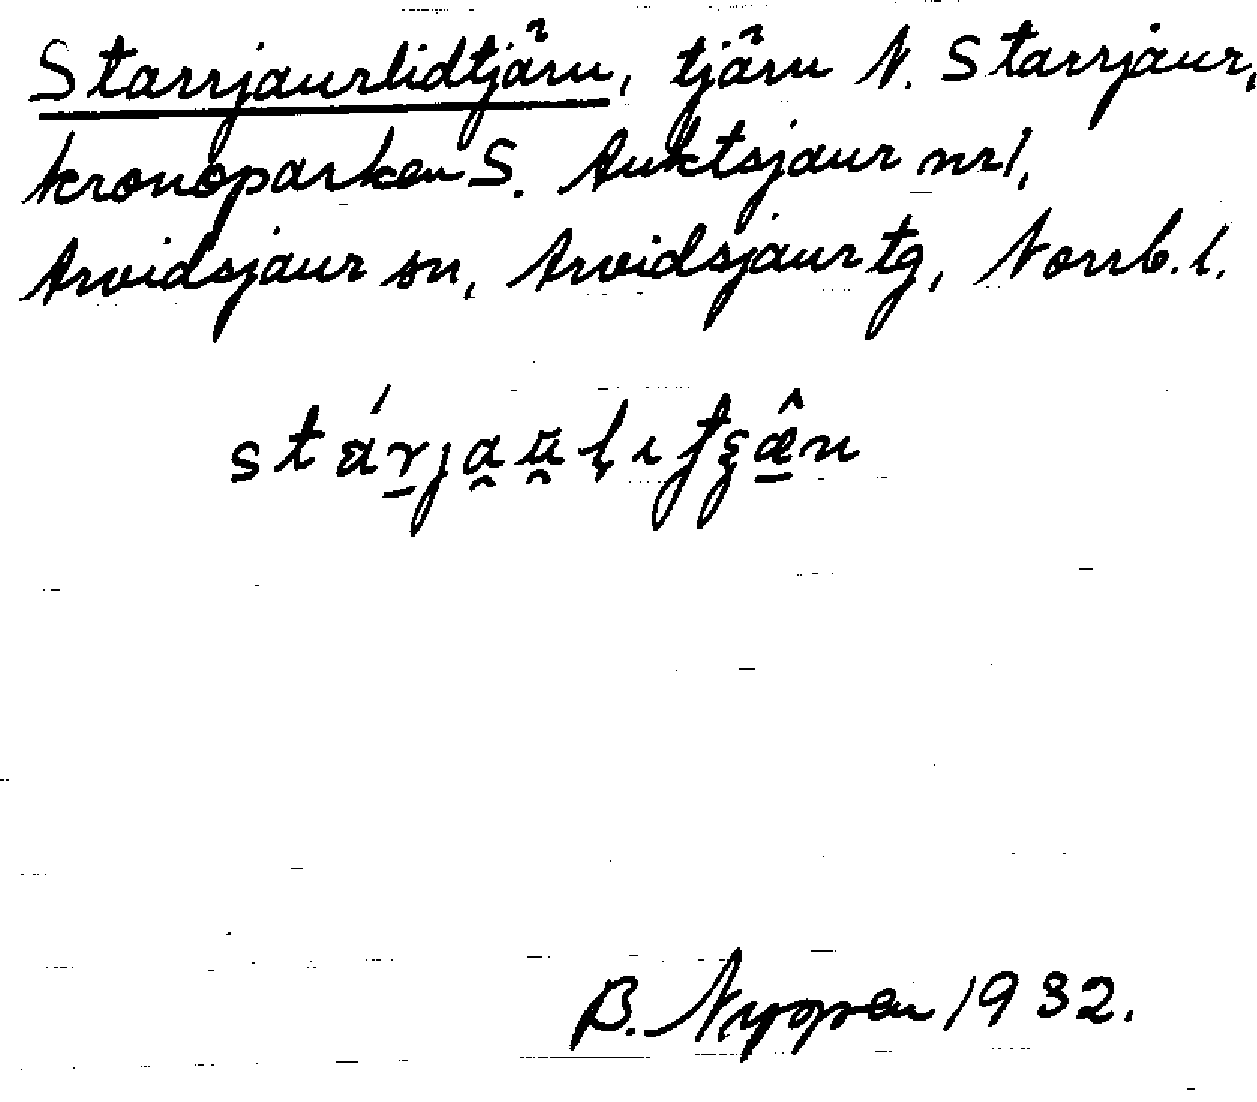 Starrjaurlidtjärn, tjärn N. Starrjaur,
kronoparken S. Auktsjaur nr 1,
Arvidsjaur sn, Arvidsjaur tg, Norrb. l.
B. Nygren 1932.